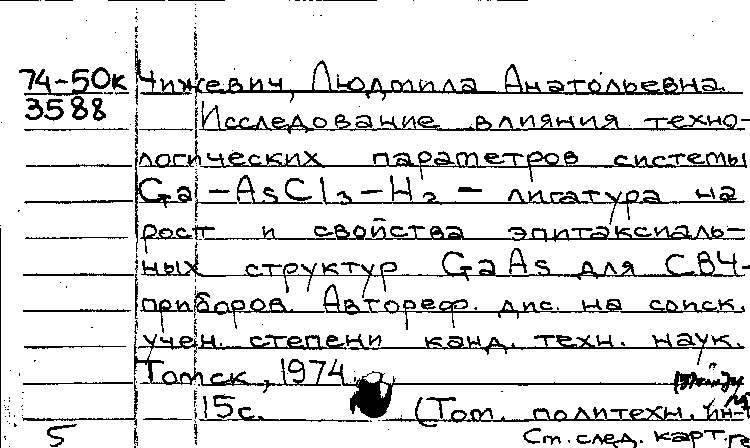 74-50к Чижевич, Людмила Анатольевна.
3588 Исследование влияния техно-
логических параметров системы
Ga-AsCl3-H2 - лигатура на
рост и свойства эпитаксиаль-
ных структур GaAs для СВЧ-
приборов. Автореф. дис. на соиск.
учен. степени канд. техн. наук.
Томск, 1974.
15с. (Том. политехн. ин-т
5 См. след. карт.